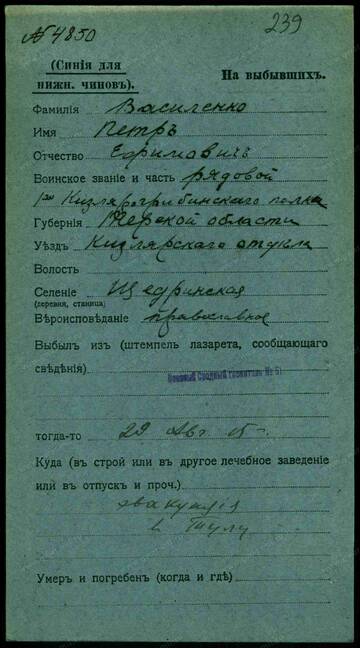 № 4850
239
(Синія для
нижн. чиновъ).
На выбывшихъ.
Фамилія Василенко
Имя Петръ
Отчество Ефимовичъ
Воинское званіе и часть рядовой
1го Кизляро-гребенского полка
Губернія Терской области
Уѣздъ Кизлярскаго отдѣла
Волость
Селеніе Щедринская
(деревня, станица)
Вѣроисповѣданіе православное
Выбылъ изъ (штемпель лазарета, сообщающаго
свѣдѣнія)
Военный Сводный госпиталь № 51
тогда-то 29 Авг 15 г.
Куда (въ строй или въ другое лечебное заведеніе
или въ отпускъ и проч.)
эвакуація
въ Тулу
Умеръ и погребенъ (когда и гдѣ)